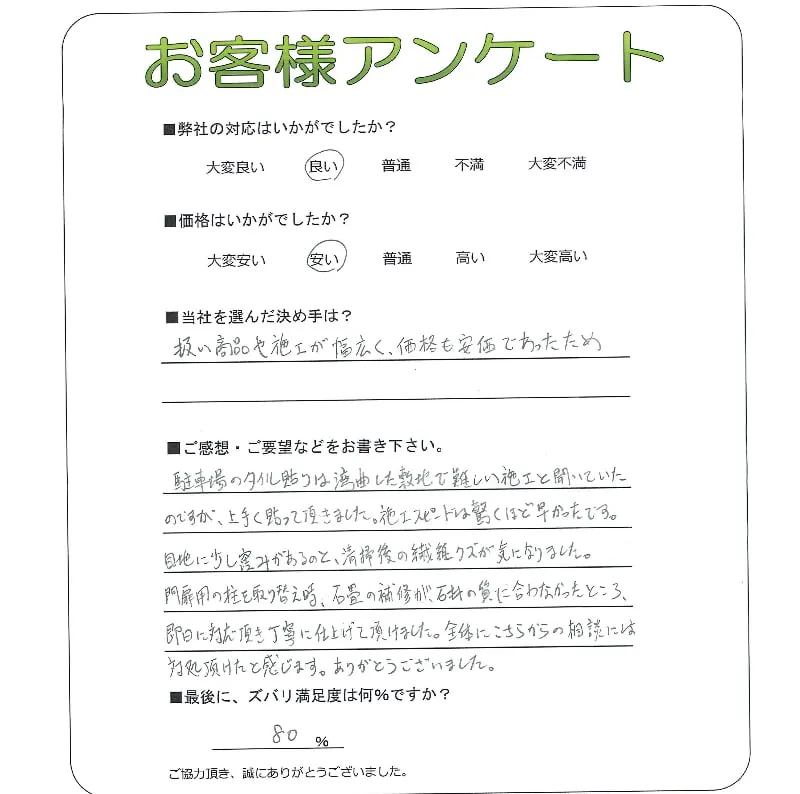 お客様アンケート
■弊社の対応はいかがでしたか？
大変良い 良い 普通 不満 大変不満
■価格はいかがでしたか？
大変安い 安い 普通 高い 大変高い
■当社を選んだ決め手は？
扱い商品や施工が幅広く、価格も安価であったため
■ご感想・ご要望などをお書き下さい。
駐車場のタイル貼りは湾曲した敷地で難しい施工と聞いていた
のですが、上手く貼って頂きました。施工スピードは驚くほど早かったです。
目地に少し窪みがあるのと、清掃後の繊維クズが気になりました。
門扉用の柱を取り替え時、石畳の補修が、石材の質に合わなかったところ、
即日に対応頂き丁寧に仕上げて頂けました。全体にこちらからの相談には
対処頂けたと感じます。ありがとうございました。
■最後に、ズバリ満足度は何％ですか？
80 ％
ご協力頂き、誠にありがとうございました。